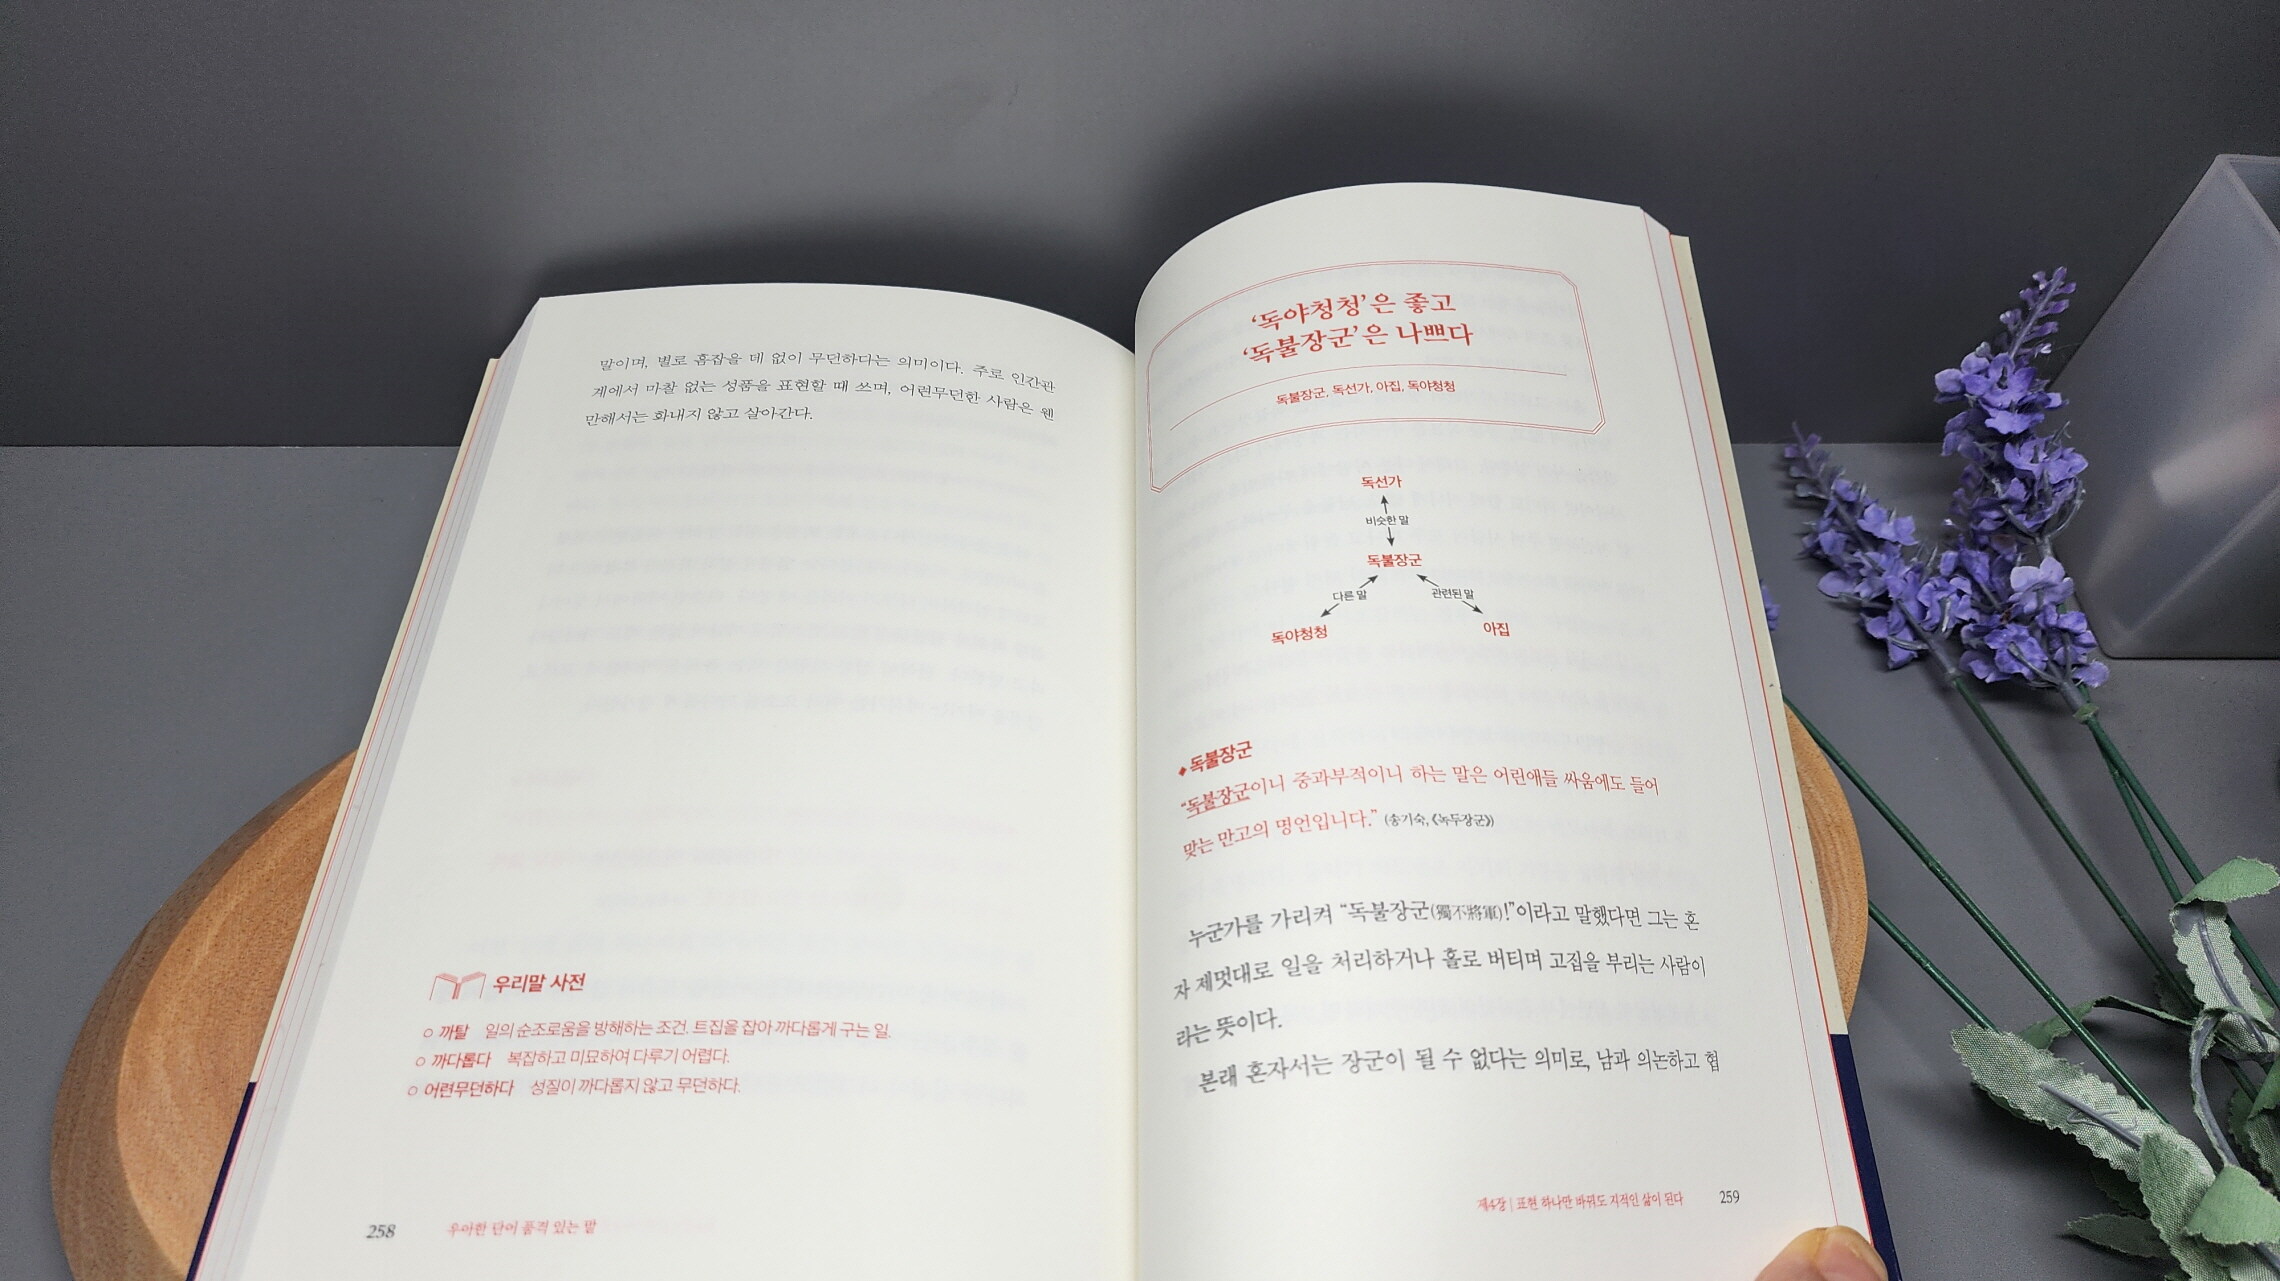 말이며, 별로 흠잡을 데 없이 무던하다는 의미이다. 주로 인간관
계에서 마찰 없는 성품을 표현할 때 쓰며, 어련무던한 사람은 웬
만해서는 화내지 않고 살아간다.
우리말 사전
○ 까탈 일의 순조로움을 방해하는 조건. 트집을 잡아 까다롭게 구는 일.
○ 까다롭다 복잡하고 미묘하여 다루기 어렵다.
○ 어련무던하다 성질이 까다롭지 않고 무던하다.
258 우아한 단어 품격 있는 말
‘독야청청’은 좋고
‘독불장군’은 나쁘다
독불장군, 독선가, 아집, 독야청청
독선가
비슷한 말
독불장군
다른 말 관련된 말
독야청청 아집
◆독불장군
“독불장군이니 중과부적이니 하는 말은 어린애들 싸움에도 들어
맞는 만고의 명언입니다.” (송기숙, 《녹두장군》)
누군가를 가리켜 “독불장군(獨不將軍)!”이라고 말했다면 그는 혼
자 제멋대로 일을 처리하거나 홀로 버티며 고집을 부리는 사람이
라는 뜻이다.
본래 혼자서는 장군이 될 수 없다는 의미로, 남과 의논하고 협
제4장 | 표현 하나만 바꿔도 지적인 삶이 된다 259